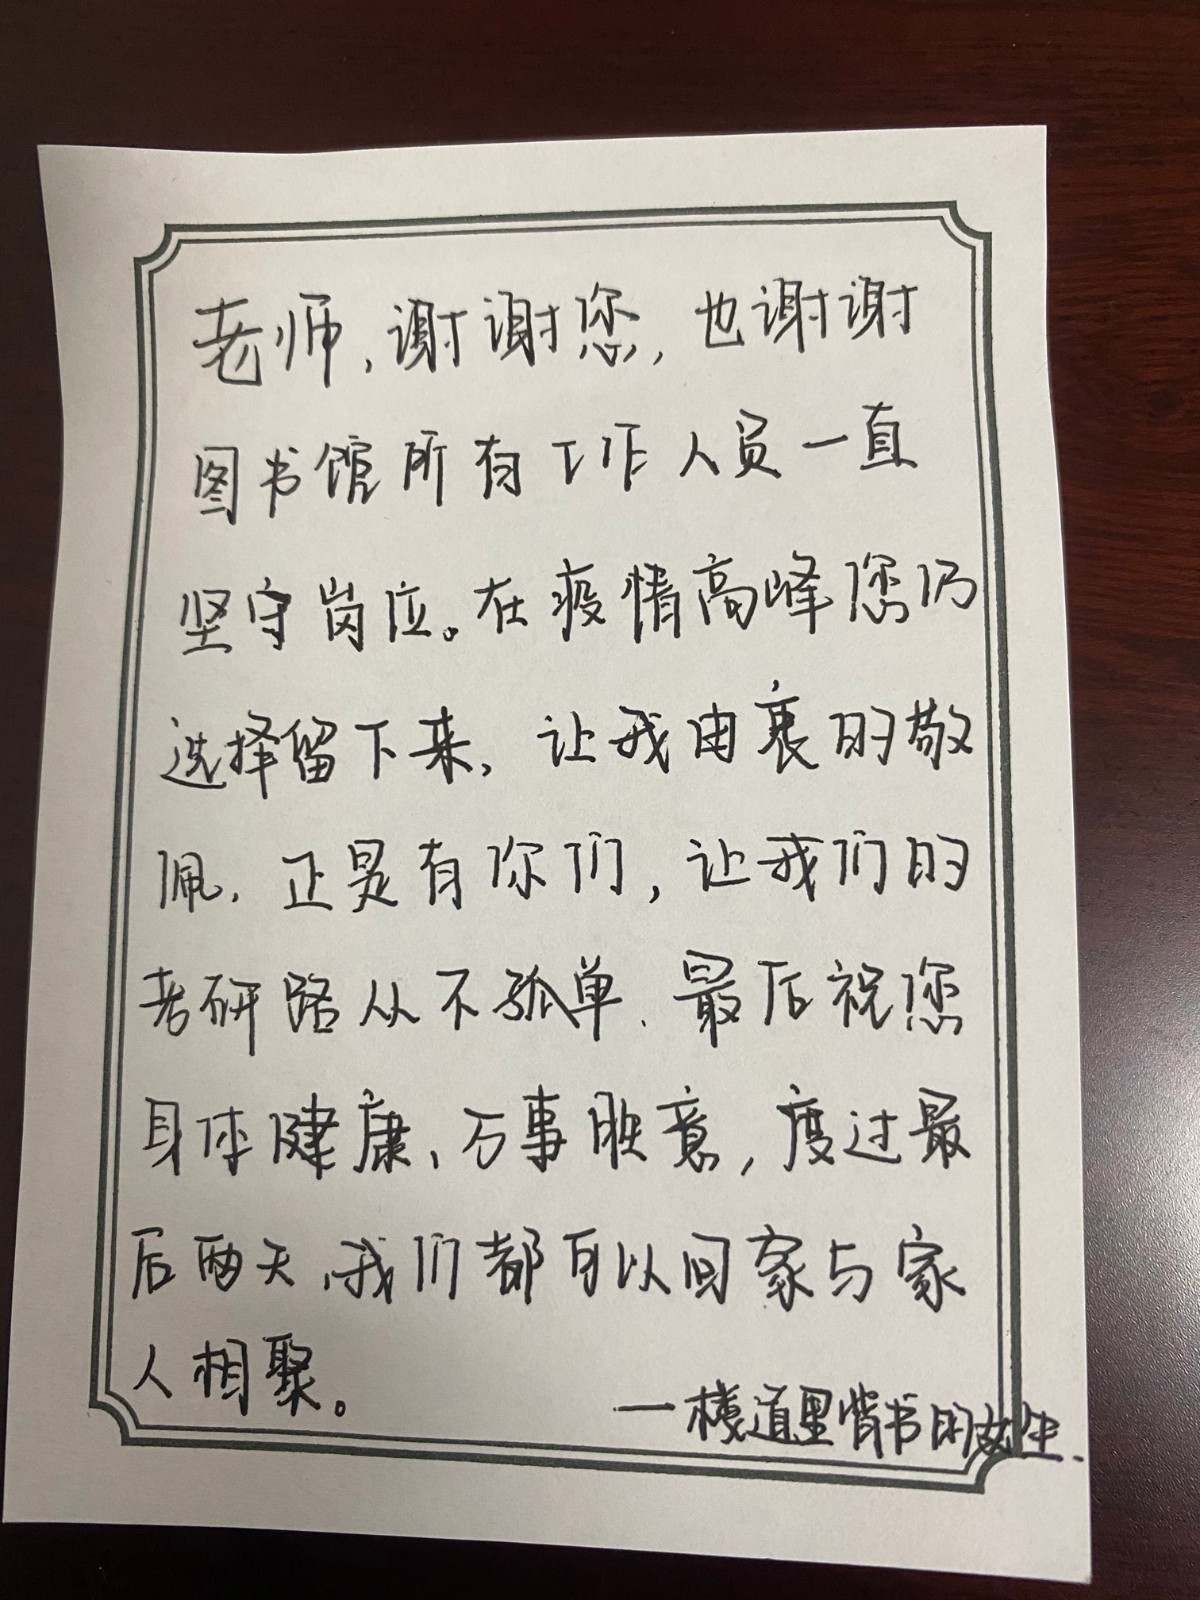 老师,谢谢您,也谢谢
图书馆所有工作人员一直
坚守岗位。在疫情高峰您仍
选择留下来,让我由衷的敬
佩.正是有你们,让我们的
考研路从不孤单.最后祝您
身体健康、万事胜意,度过最
后两天,我们都可以回家与家
人相聚。
—楼道里背书的女生.